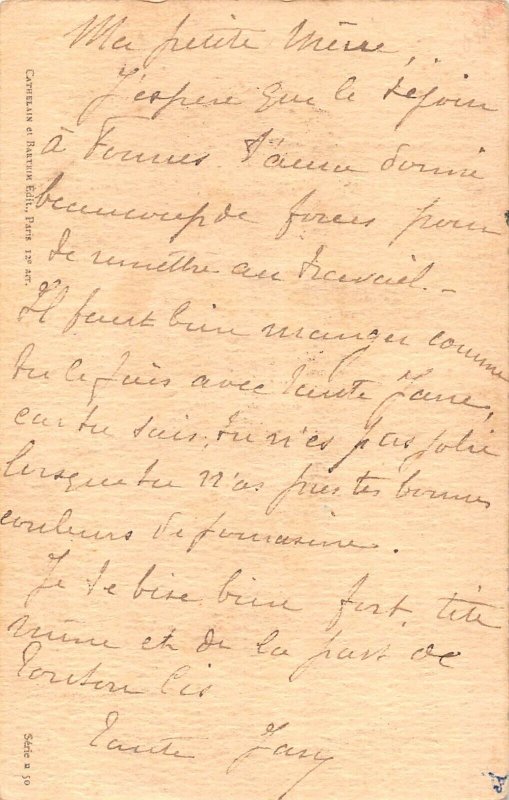 Ma petite Mène,
J'espère que le séjour
à Fonnes t'aura donné
beaucoup de forces pour
te remettre au travail. –
Il faut bien manger comme
tu le fais avec Tante Jane,
car tu sais, tu n'es pas jolie
lorsque tu n'as pas tes bonnes
couleurs de
Je te bise bien fort, tite
mène et de la part de
Tonton
Tante Jany
CATHELAIN et BARTHIM Edit., Paris 12e arr.
Série n 50